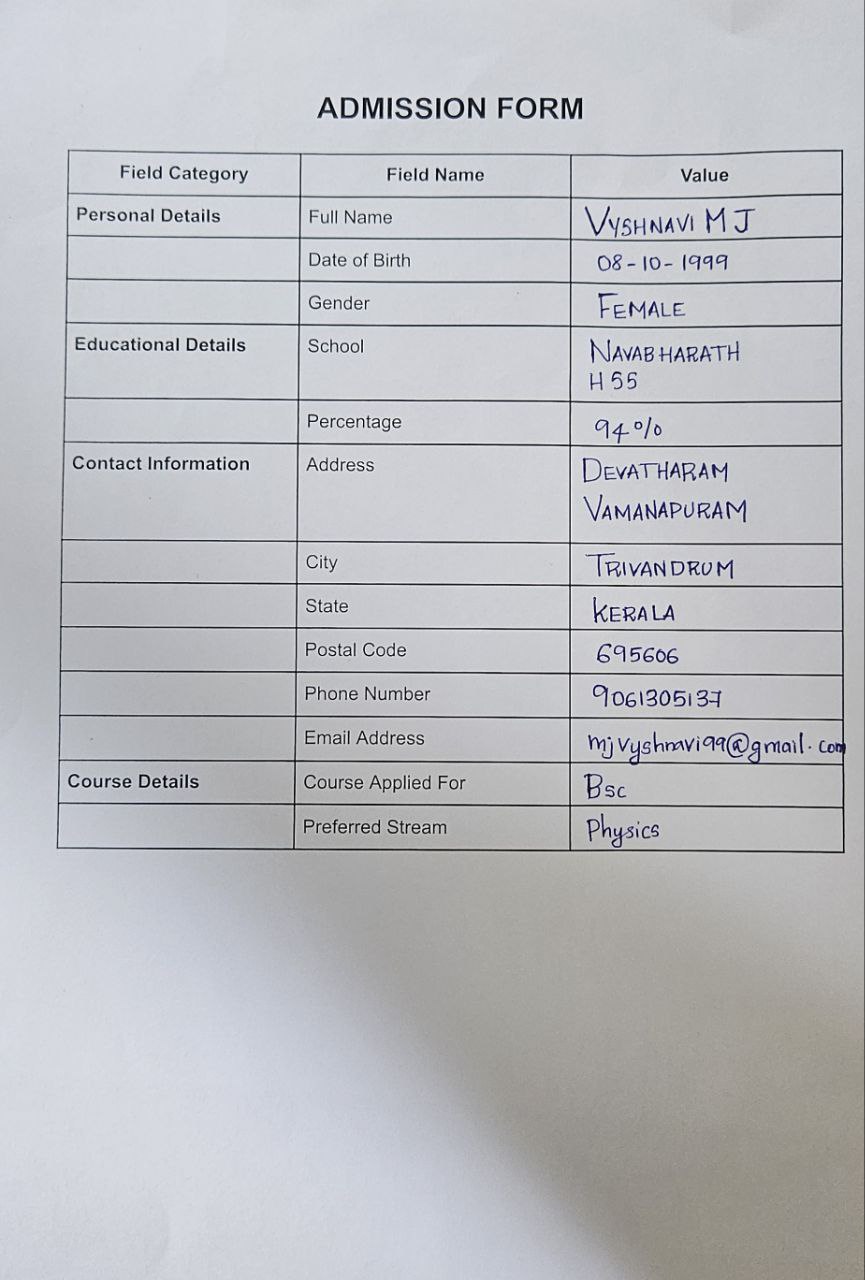 ADMISSION FORM
Field Category Field Name Value
Personal Details Full Name VYSHNAVI M J
Date of Birth 08-10-1999
Gender FEMALE
Educational Details School NAVABHARATH
HSS
Percentage 94%
Contact Information Address DEVATHARAM
VAMANAPURAM
City TRIVANDRUM
State KERALA
Postal Code 695606
Phone Number 9061305137
Email Address mjvyshnavi99@gmail.com
Course Details Course Applied For Bsc
Preferred Stream Physics